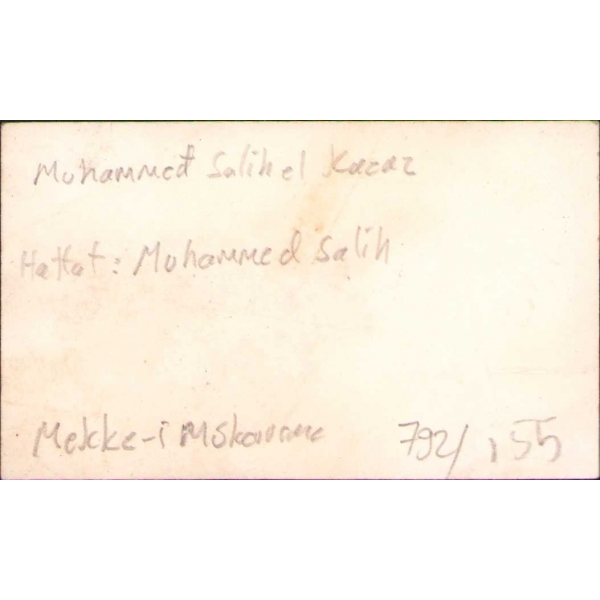 Muhammed Salih el Kazaz
Hattat: Muhammed Salih
Mekke-i Mükerreme 792/155